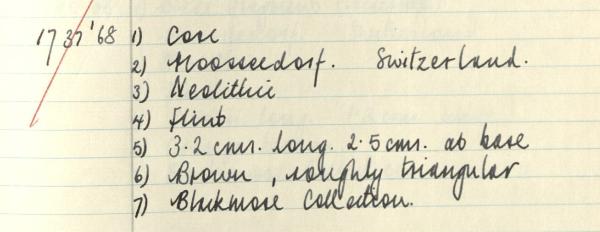 1737'68 1) Core
2) Moosseedorf. Switzerland.
3) Neolithic
4) Flint
5) 3.2 cms. long. 2.5 cms. at base
6) Brown, roughly triangular
7) Blackmore Collection.